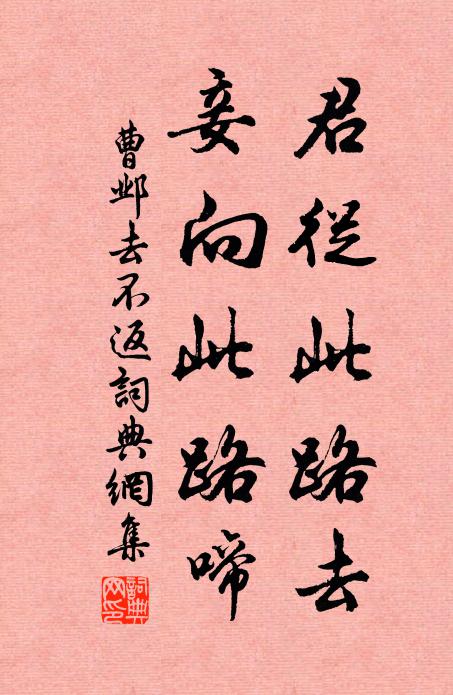 君從此路去
妾向此路啼
曹邺去不返詞典網集